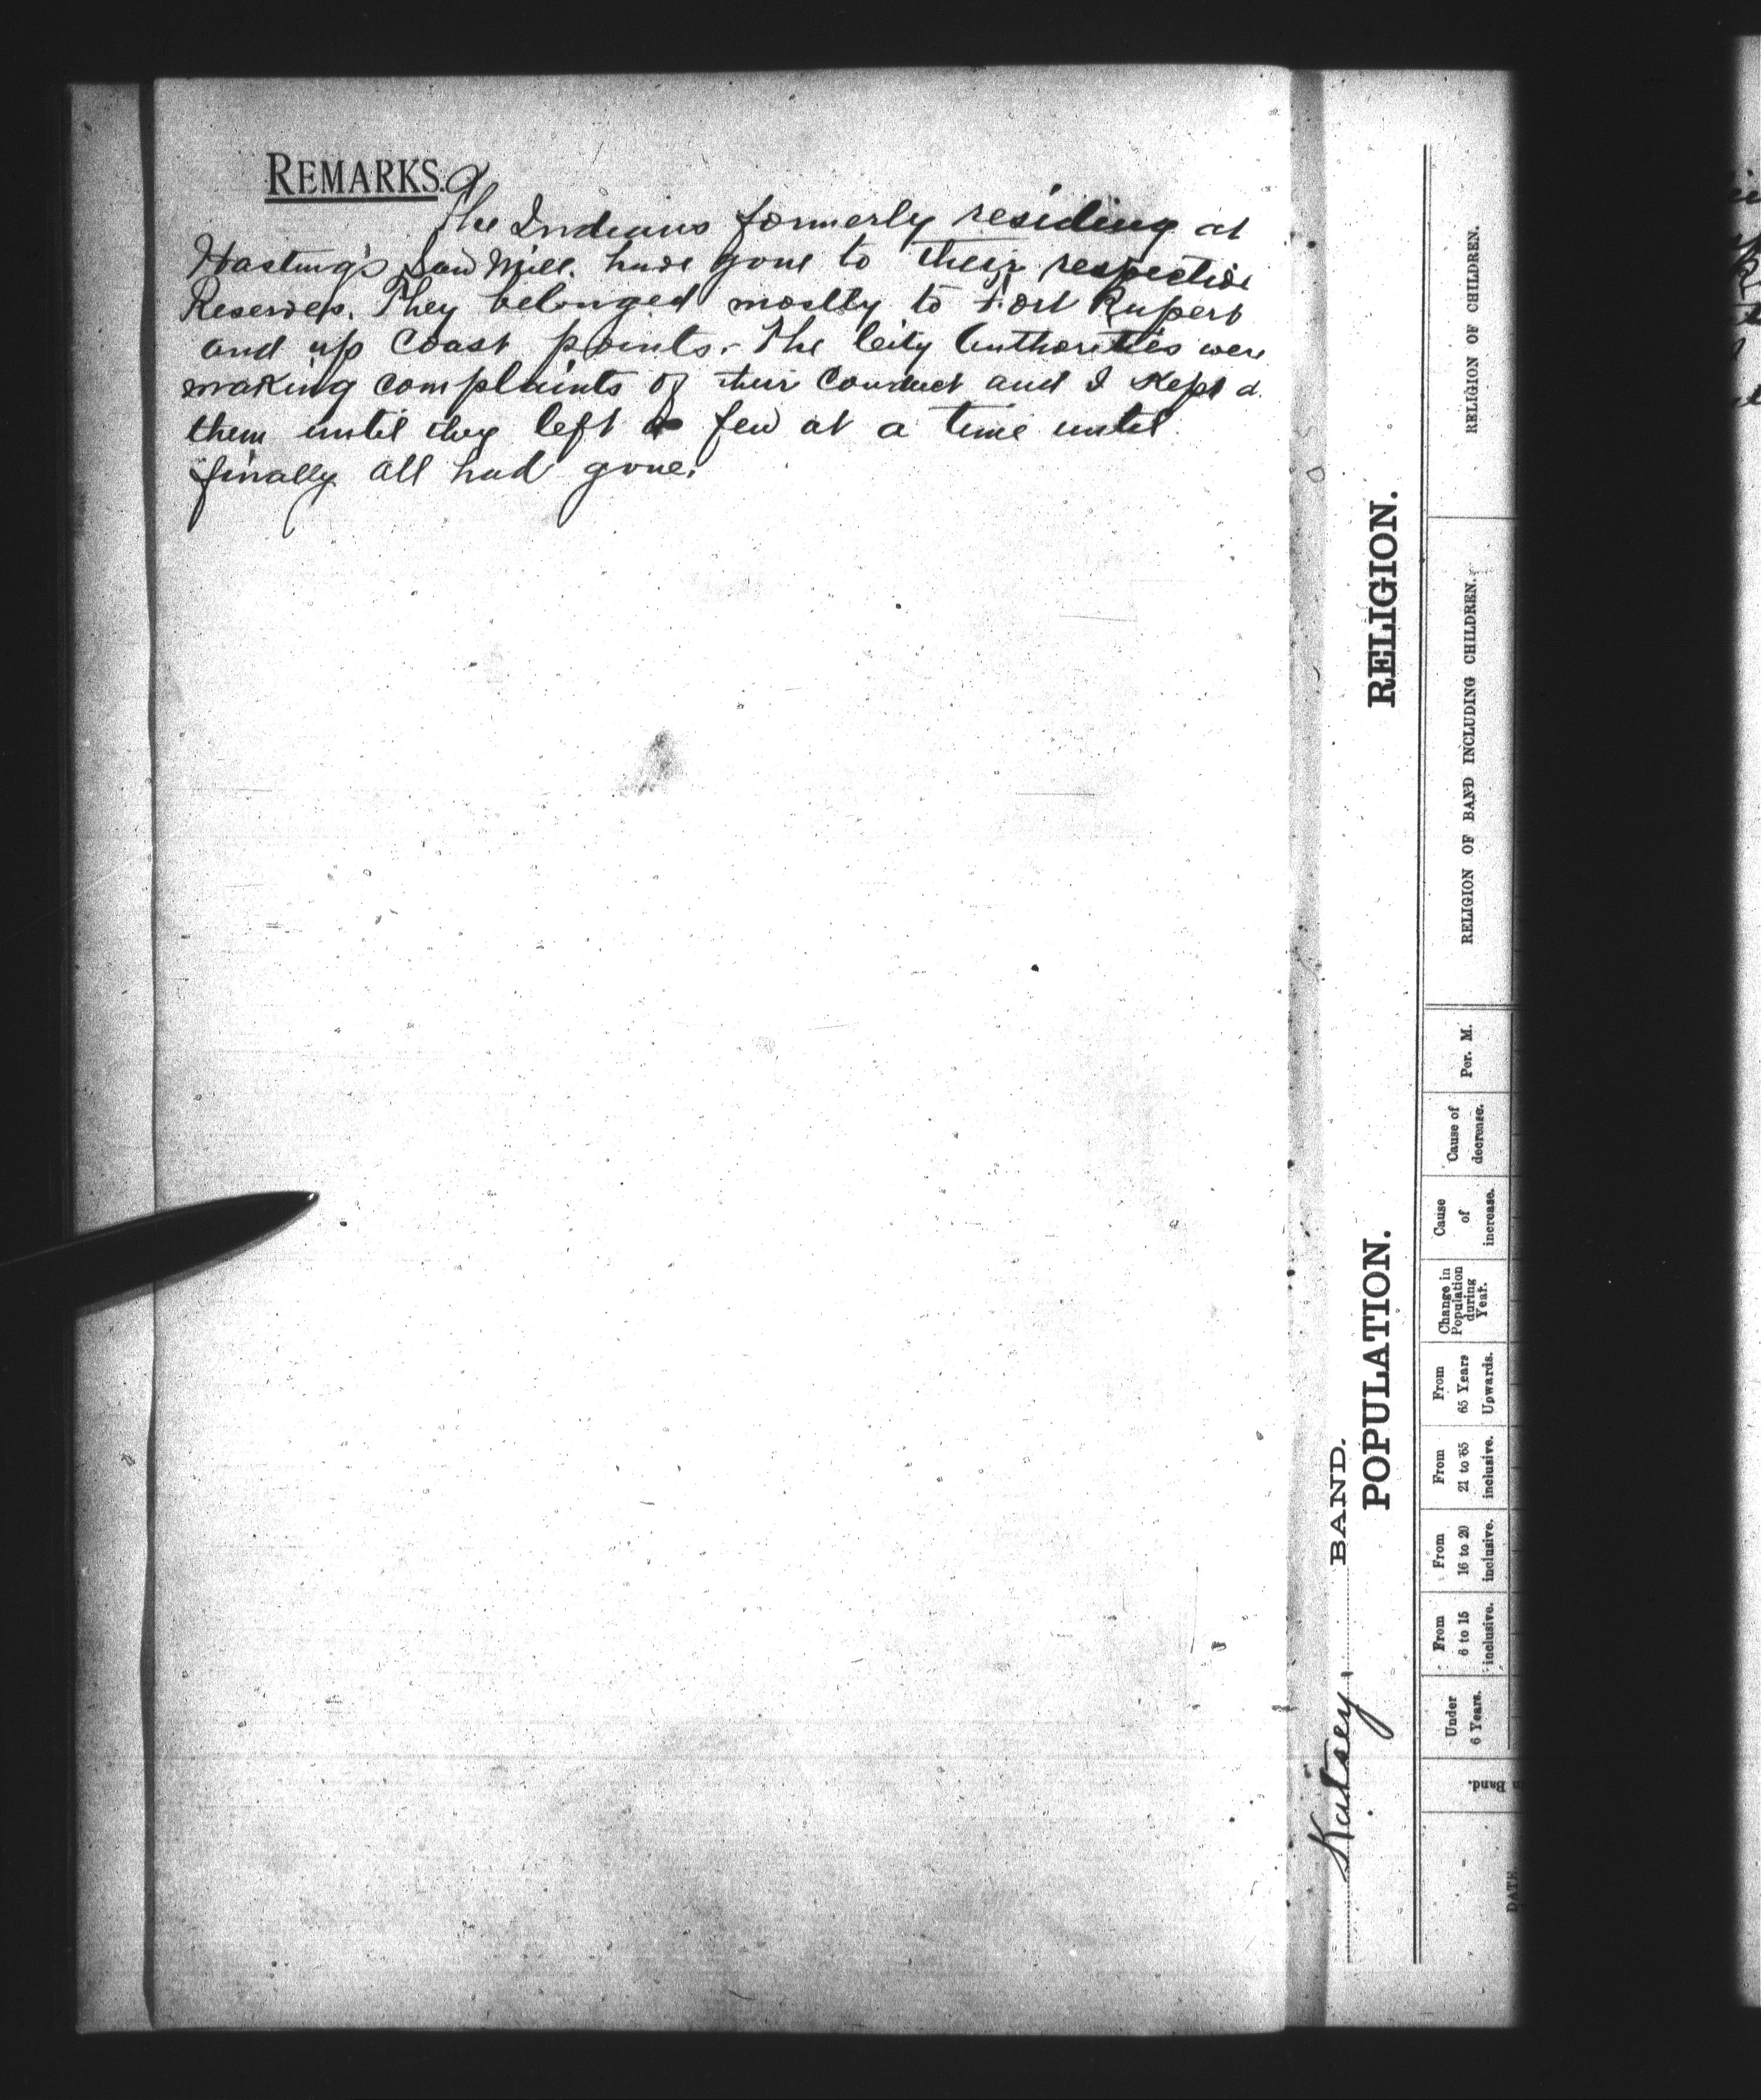 REMARKS.
The Indians formerly residing at
Hasting's Saw Mill. have gone to their respective
Reserves. They belonged mostly to Fort Rupert
and up Coast points. The City Authorities were
making complaints of their Conduct and I Kept
them until they left a few at a time until
finally all had gone.
RELIGION.
RELIGION OF CHILDREN.
RELIGION OF BAND INCLUDING CHILDREN.
Katsey BAND.
POPULATION.
Per. M.
Cause of
decrease.
Cause
of
increase.
Change in
Population
during
Year.
From
65 Years
Upwards.
From
21 to 65
inclusive.
From
16 to 20
inclusive.
From
6 to 15
inclusive.
Under
6 Years.
Band.
DATE